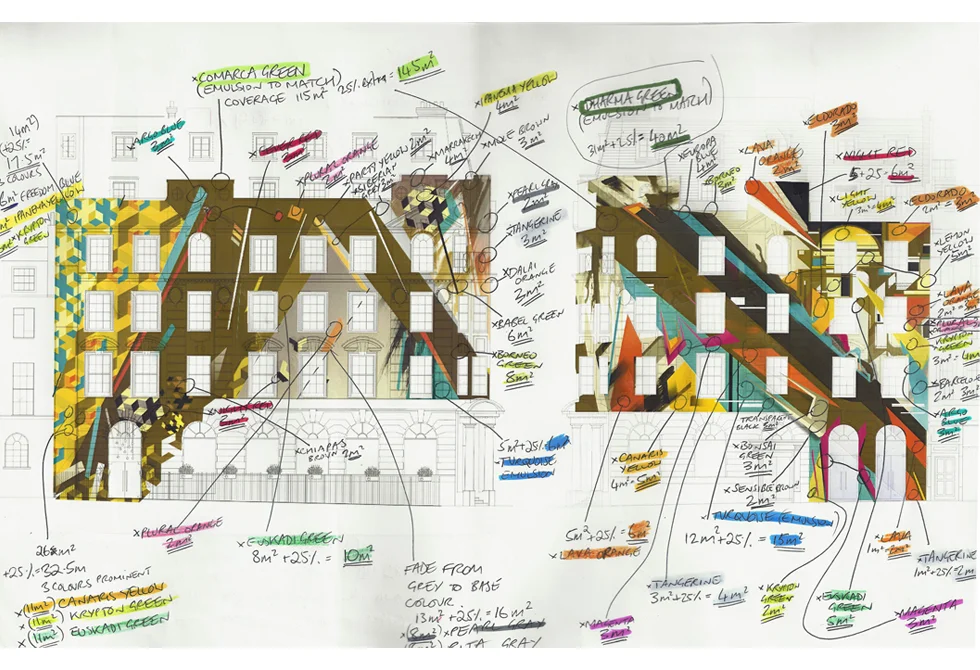 COMARCA GREEN
(EMULSION TO MATCH)
COVERAGE 115m² 25% EXTRA = 145m²
IPANEMA YELLOW
4m²
MOLE BROWN
3m²
MARRAKECH
4m²
PLURAL ORANGE
2m²
PARTY YELLOW 2m²
ARGO BLUE
14m²)
+25%)
17.5m²
3 COLOURS
6m² FREEDOM BLUE
IPANEMA YELLOW
KRYPTON
GREEN
TANGERINE
3m²
DALAI
ORANGE
3m²
BABEL GREEN
6m²
BORNEO
GREEN
8m²
5m²+25%
TURQUOISE
EMULSION
CHIAPAS
BROWN 2m²
PLURAL ORANGE
2m²
EUSKADI GREEN
8m²+25% = 10m²
26m²
+25% = 32.5m
3 COLOURS PROMINENT
(11m²) CANARIS YELLOW
(11m²) KRYPTON GREEN
(11m²) EUSKADI GREEN
FADE FROM
GREY TO BASE
COLOUR
13m²+25% = 16m²
PEARL GRAY
RITA GRAY
DHARMA GREEN
(EMULSION TO MATCH)
31m²+25% = 40m²
EUROPA
BLUE
4m²
BORNEO
2m²
LAVA
ORANGE
2m²
ELDORADO
3m²
NIGHT RED
5+25=6m²
LIGHT
YELLOW
ELDORADO
2m²
LEMON
YELLOW
5m²
LAVA
ORANGE
2m²
PLURAL
ORANGE
KRYPTON
GREEN
3m² = 4m²
BARCELONA
2m² 3m²
ARGO
BLUE
3m²
TRANSPARENT
BLACK
BONSAI
GREEN
3m²
SENSIBLE BROWN
2m²
CANARIS
YELLOW
4m² = 5m²
5m²+25% = 6m²
LAVA ORANGE
TURQUOISE (EMULSION
12m²+25% = 15m²
TANGERINE
3m²+25% = 4m²
KRYPTON
GREEN
2m²
EUSKADI
GREEN
5m²
LAVA
TANGERINE
1m²+25% = 2m
MAGENTA
3m²
MAGENTA
3m²